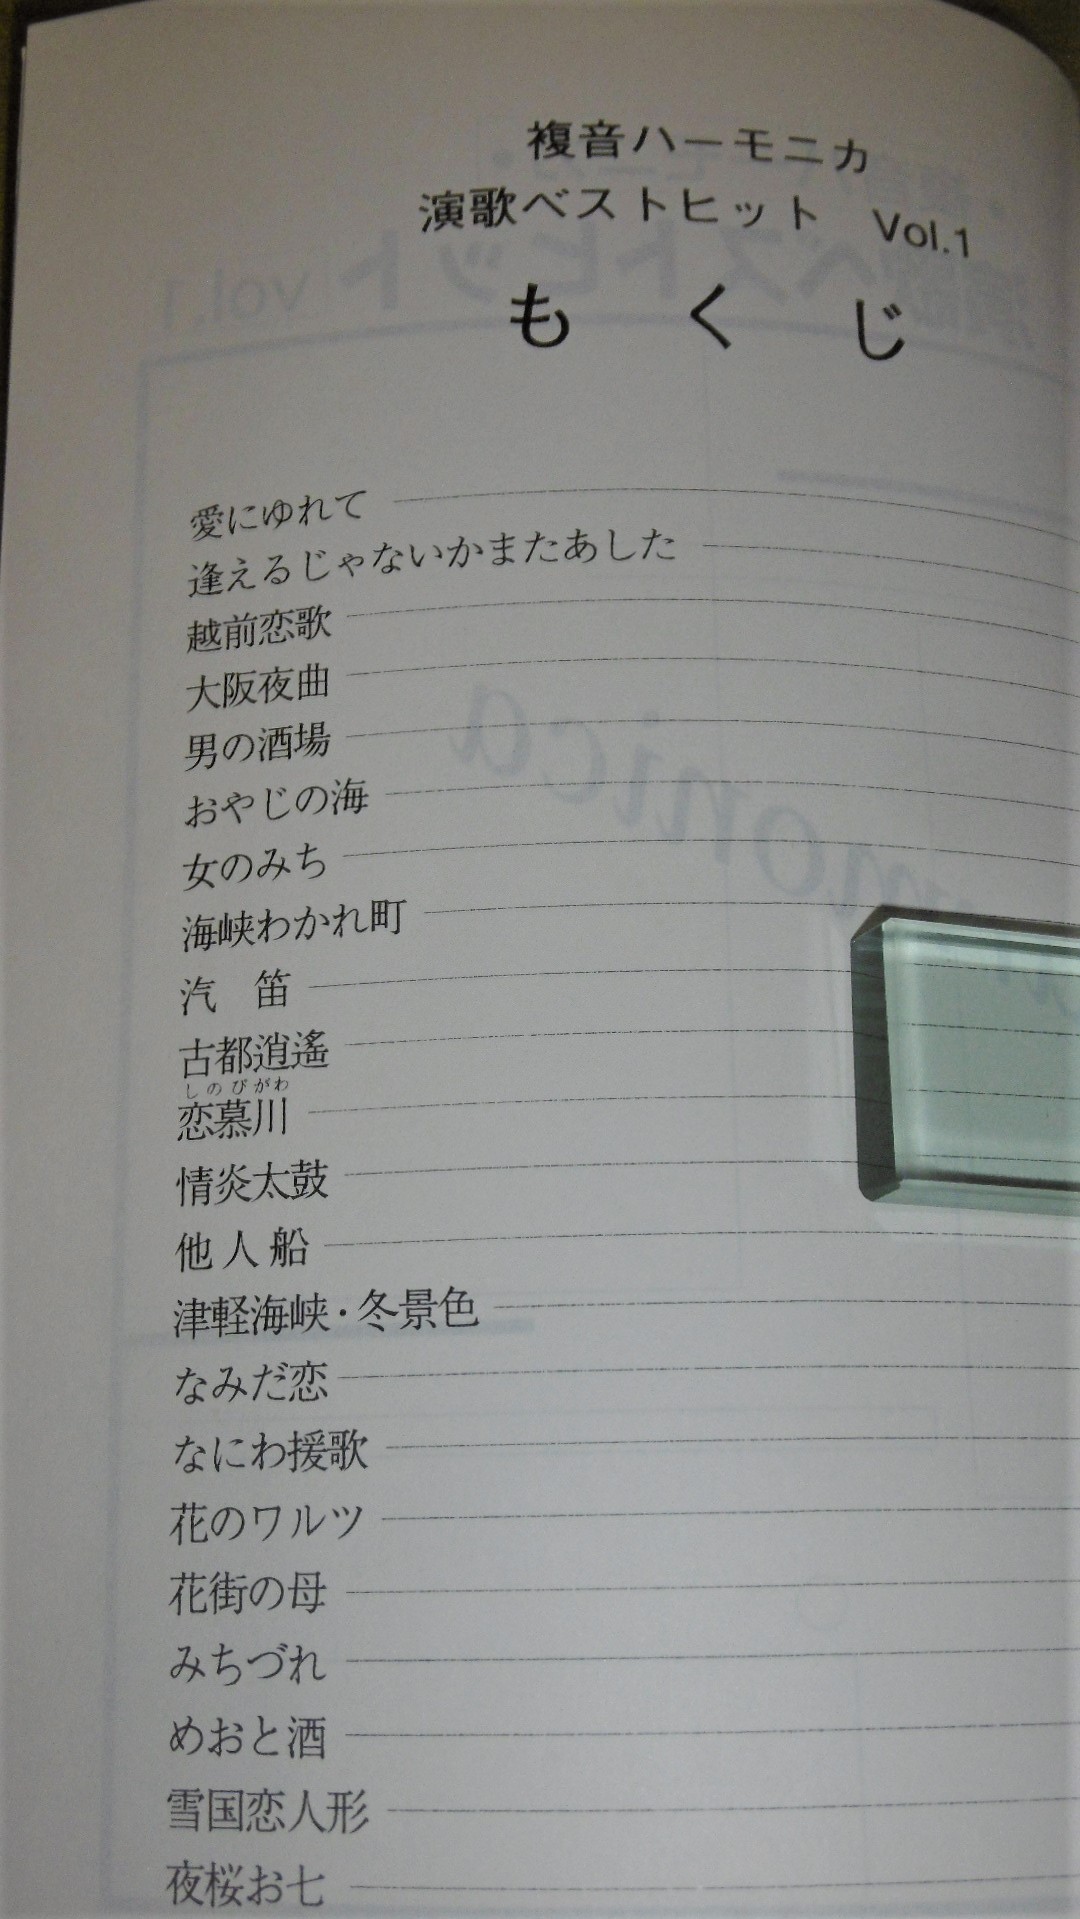 複音ハーモニカ
演歌ベストヒット Vol.1
もくじ
愛にゆれて
逢えるじゃないかまたあした
越前恋歌
大阪夜曲
男の酒場
おやじの海
女のみち
海峡わかれ町
汽　笛
古都逍遙
しのびがわ
恋慕川
情炎太鼓
他人船
津軽海峡・冬景色
なみだ恋
なにわ援歌
花のワルツ
花街の母
みちづれ
めおと酒
雪国恋人形
夜桜お七